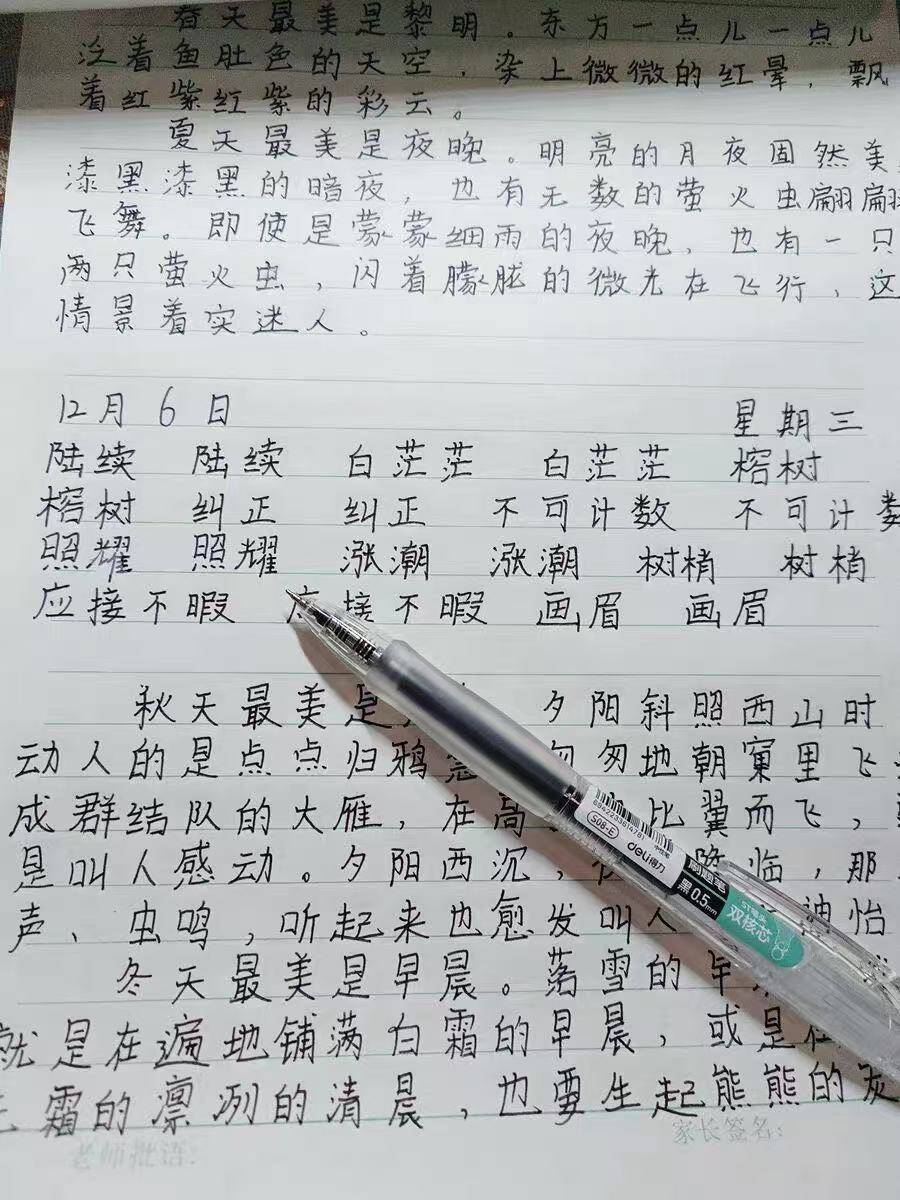 春天最美是黎明。东方一点儿一点儿
泛着鱼肚色的天空,染上微微的红晕,飘
着红紫红紫的彩云。
夏天最美是夜晚。明亮的月夜固然美
漆黑漆黑的暗夜,也有无数的萤火虫翩翩
飞舞。即使是蒙蒙细雨的夜晚,也有一只
两只萤火虫,闪着朦胧的微光在飞行、这
情景着实迷人。
12月6日 星期三
陆续 陆续 白茫茫 白茫茫 榕树
榕树 纠正 纠正 不可计数 不可计数
照耀 照耀 涨潮 涨潮 树梢 树梢
应接不暇 应接不暇 画眉 画眉
秋天最美是 夕阳斜照西山时
动人的是点点归鸦急 匆匆地朝窠里飞
成群结队的大雁,在高 比翼而飞,
是叫人感动。夕阳西沉, 降临,那
声、虫鸣,听起来也愈发叫人 神怡
冬天最美是早晨。落雪的早
就是在遍地铺满白霜的早晨,或是在
霜的凛冽的清晨,也要生起熊熊的灰
老师批语: 家长签名:
6942233614781
S08-E
deli得力
刷题笔
黑0.5mm
ST笔头
双核芯